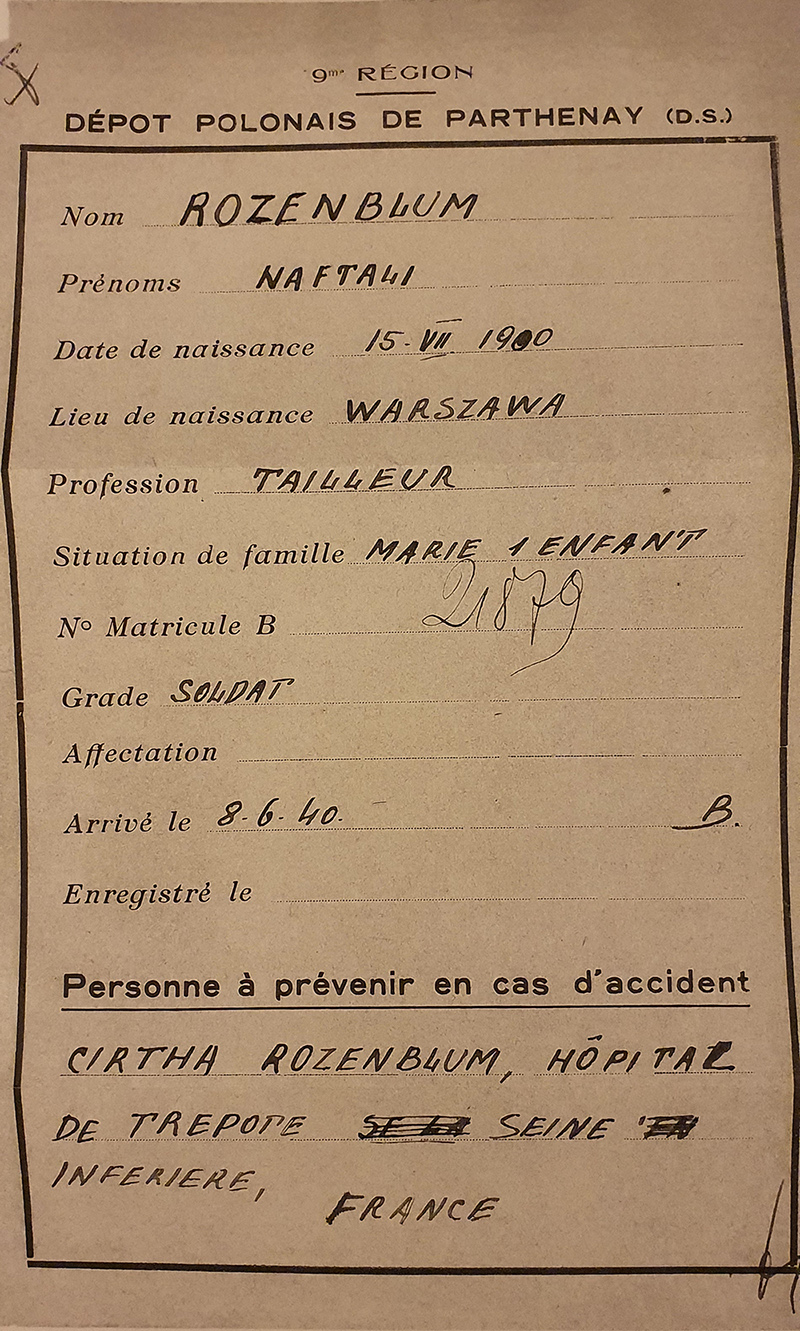 9me RÉGION
DÉPOT POLONAIS DE PARTHENAY (D.S.)
Nom ROZENBLUM
Prénoms NAFTALI
Date de naissance 15-VII 1900
Lieu de naissance WARSZAWA
Profession TAILLEUR
Situation de famille MARIE 1 ENFANT
No Matricule B 21879
Grade SOLDAT
Affectation
Arrivé le 8-6-40. B.
Enregistré le
Personne à prévenir en cas d'accident
CIRTHA ROZENBLUM, HÔPITAL
DE TREPORE SEINE
INFERIERE,
FRANCE